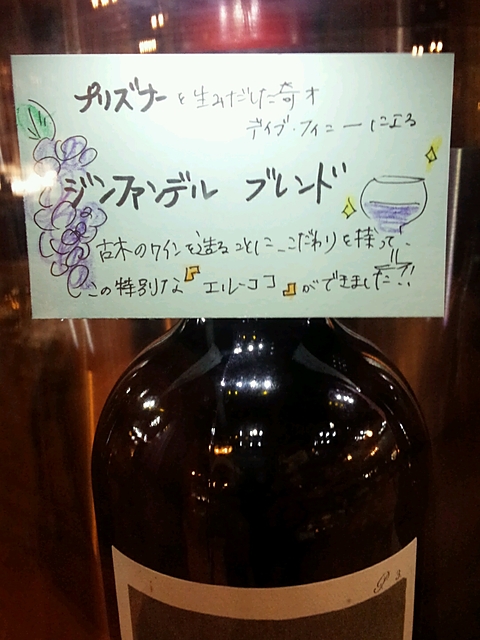 プリズナーを生みだした奇才
デイブ・フィニーによる
ジンファンデル ブレンド
古木のワインを造ることに、こだわりを持って、
この特別な『エル・ココ』ができました!!